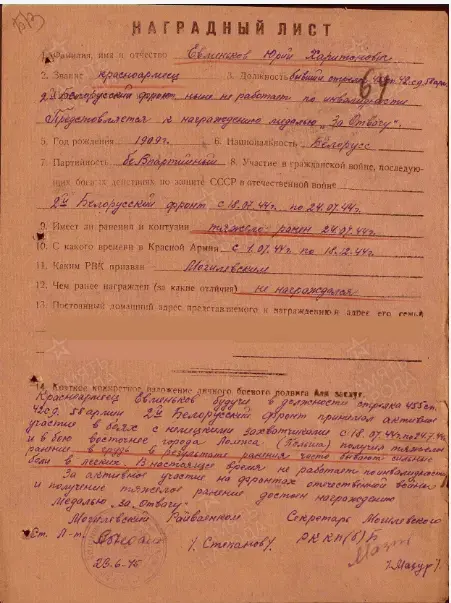 НАГРАДНЫЙ ЛИСТ
1. Фамилия, имя и отчество Евменьков Юрий Харитонович
2. Звание красноармеец 3. Должность бывший стрелок 455 сп. 42 сд. 58 арм.
2й Белорусский фронт ныне не работает по инвалидности
Представляется к награждению медалью "За Отвагу".
5. Год рождения 1909 г. 6. Национальность Белорусс
7. Партийность беспартийный 8. Участие в гражданской войне, последую-
щих боевых действиях по защите СССР в отечественной войне
2й Белорусский фронт с 18.07.44г. по 24.07.44г.
9. Имеет ли ранения и контузии тяжело ранен 24.07.44г.
10. С какого времени в Красной Армии с 1.07.44г. по 18.12.44г.
11. Каким РВК призван Могилевским
12. Чем ранее награжден (за какие отличия) не награждался
13. Постоянный домашний адрес представляемого к награждению и адрес его семьи
14. Краткое конкретное изложение личного боевого подвига или заслуг.
Красноармеец Евменьков будучи в должности стрелка 455 сп.
42 сд. 58 армии 2й Белорусский фронт принимал активное
участие в боях с немецкими захватчиками с 18.07.44г. по 24.7.44г.
и в бою восточнее города Ломжа (Польша) получил тяжелое
ранение в грудь в результате ранения часто бывают сильные
боли в легких. В настоящее время не работает по инвалидности
За активное участие на фронтах отечественной войны
и получение тяжелое ранение достоин награждению
медалью "За Отвагу".
Могилевский Райвоенком Секретарь Могилевского
Ст. Л-т. /Степанов/. РК КП(б)Б
23-6-45 /Мазур/.